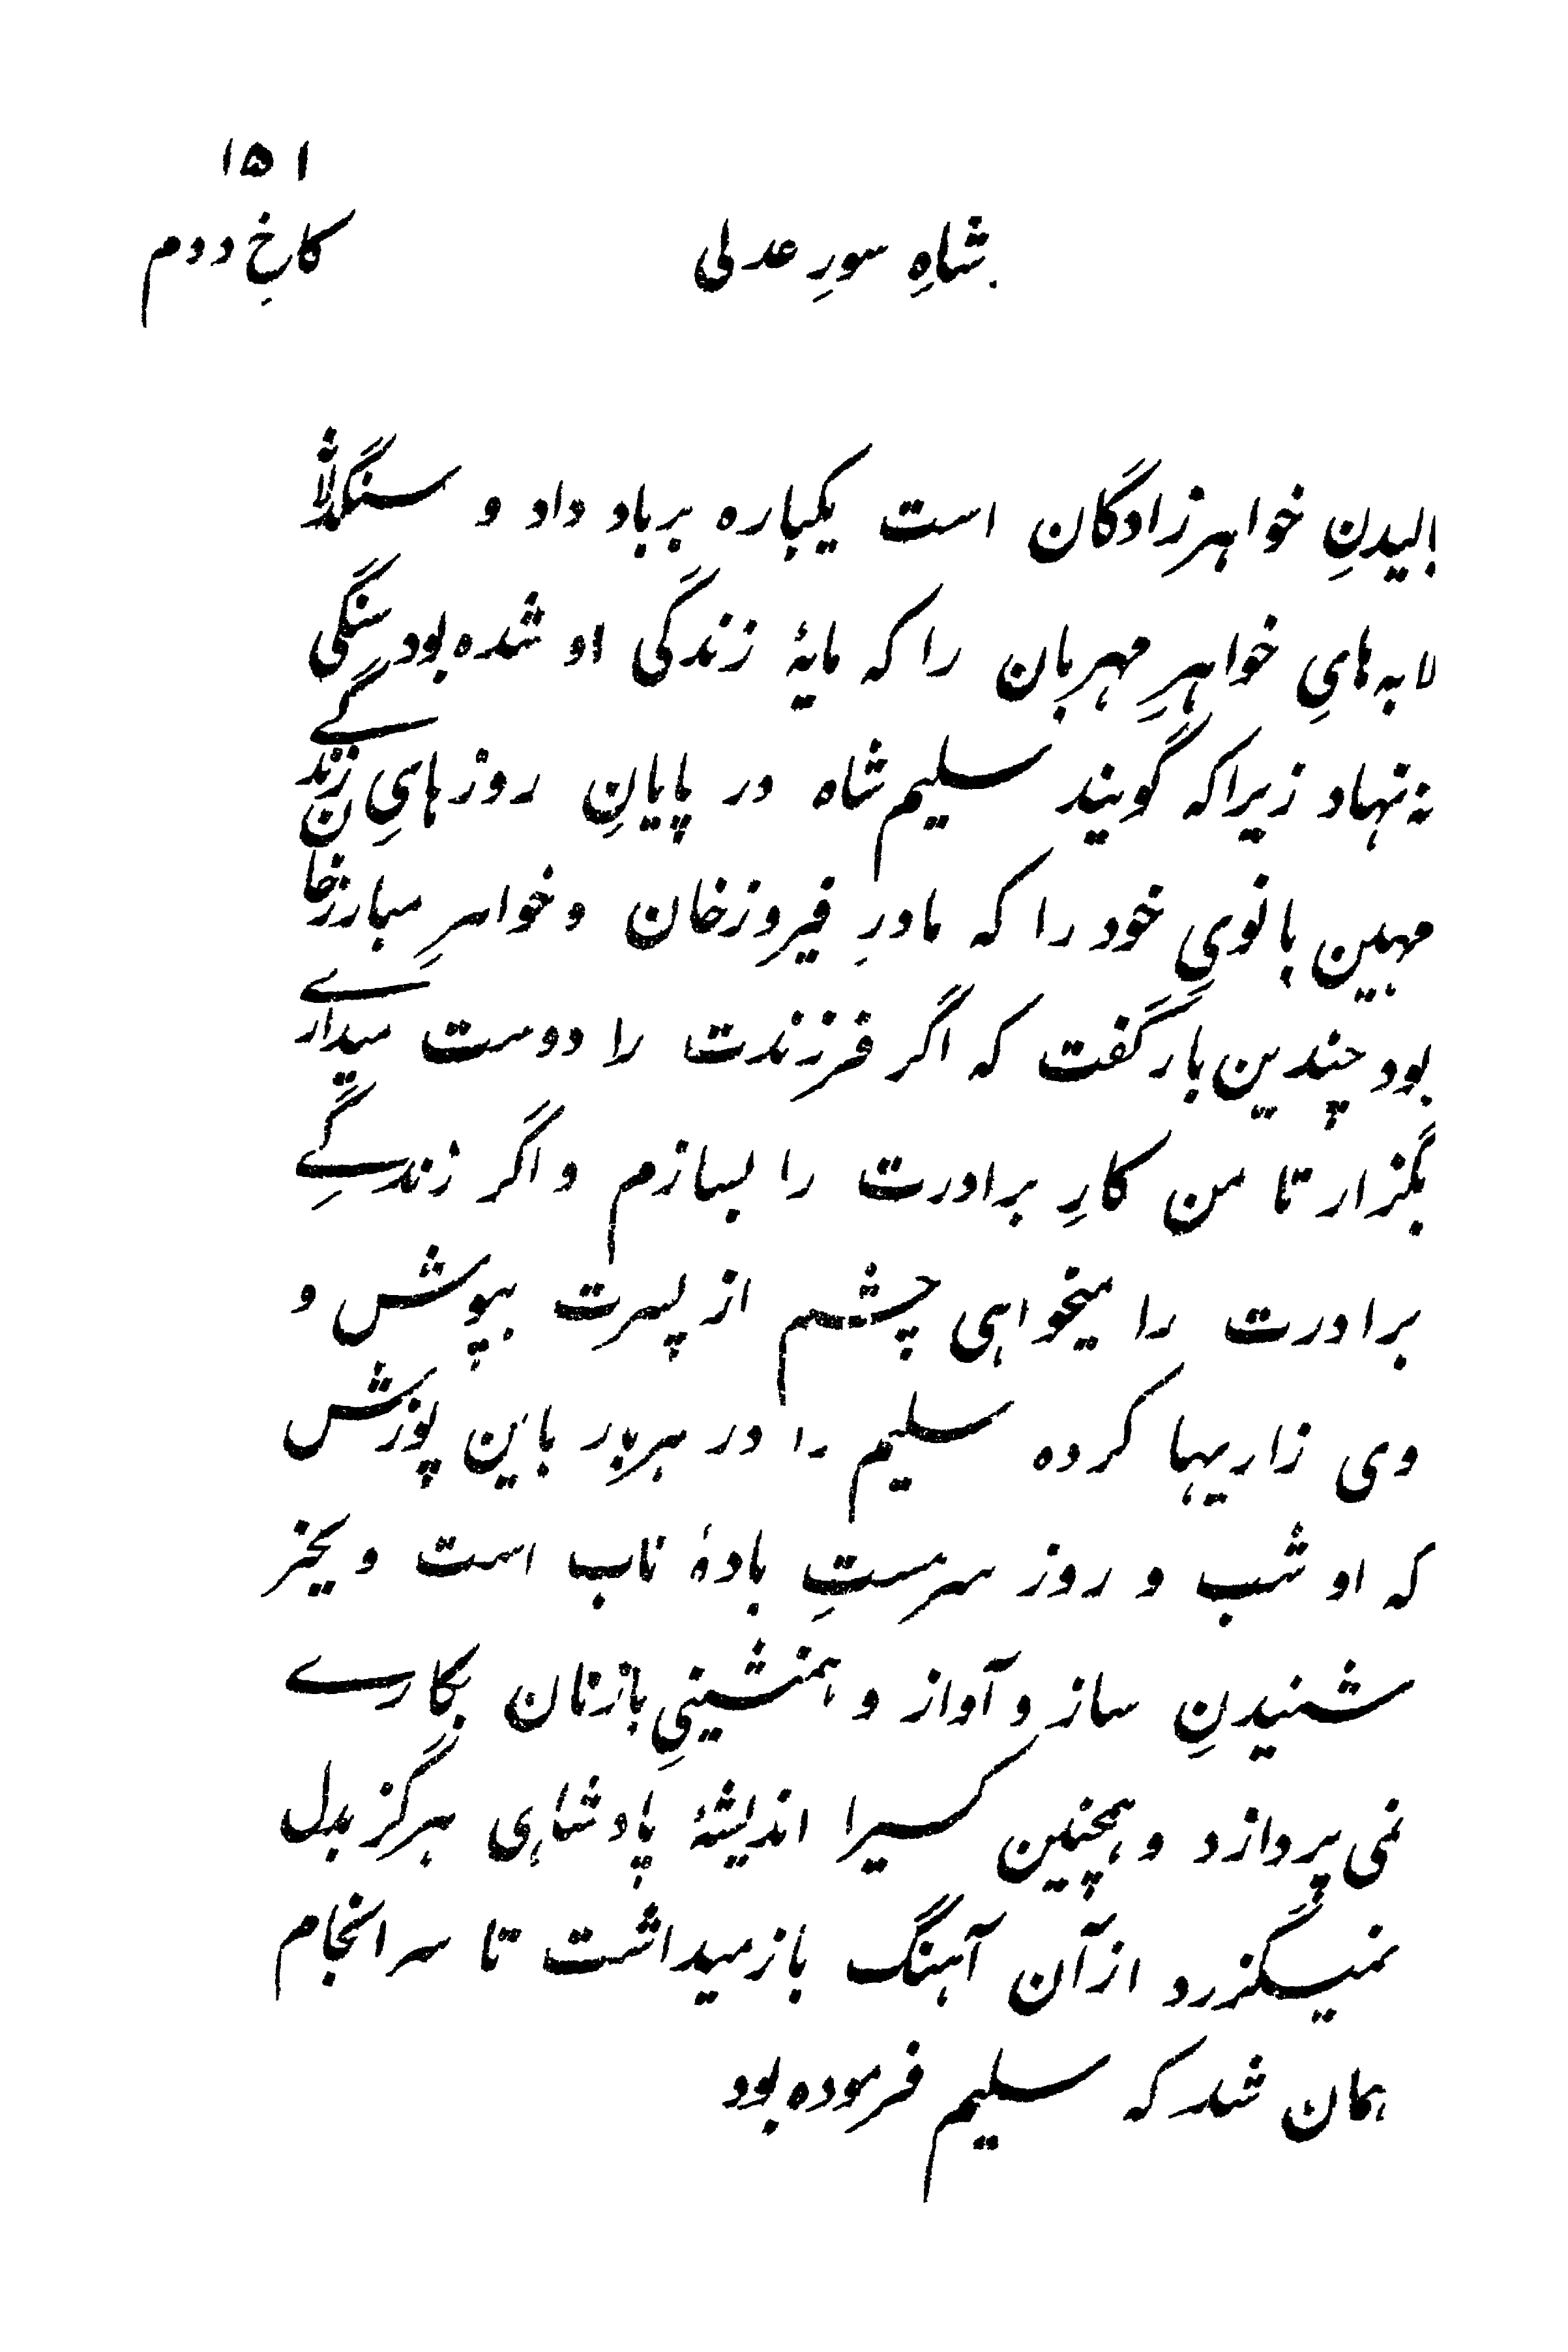 ۱۵۱
شاهِ سورِ عدلی کاخِ دوم
بالیدنِ خواهرزادگان است یکباره برباد داد و سنگدلانه
لابه‌هایِ خواهرِ مهربان را که مایۀ زندگی او شده بود سنگی
نه نهاد زیراکه گویند سلیم شاه در پایانِ روزهایِ زندگے
مهین بانویِ خود را که مادرِ فیروزخان و خواهرِ مبارزخان
بود چندین بار گفت که اگر فرزندت را دوست میدارے
بگزار تا من کارِ برادرت را بسازم و اگر زندگےِ
برادرت را میخواهی چشم از پسرت بپوش و
وی زاریها کرده سلیم را در هر بار باین پوزش
که او شب و روز سرمستِ بادۀ ناب است و بجز
شنیدنِ ساز و آواز و همنشینیِ بازنان بکارے
نمی پردازد و همچنین کسیرا اندیشۀ پادشاهی هرگز بدل
نمیگزرد ازآن آهنگ بازمیداشت تا سرانجام
همان شد که سلیم فرموده بود